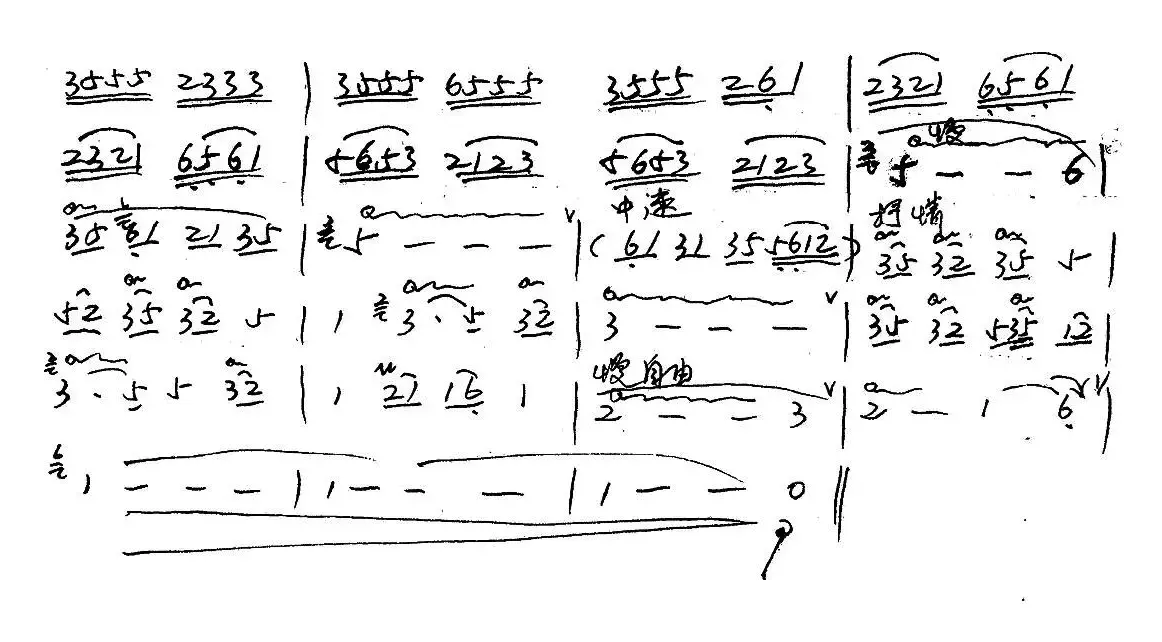 3555 2333 | 3555 6555 3555 261 | 2321 6561
2321 6561 | 5653 2123 5653 2123 慢 5 — — 6 |
35 61 21 35 | 5 — — — | 中速 ( 61 31 35 5612 ) 抒情 35 32 35 5 |
52 35 32 5 | 1 3 · 5 32 | 3 — — — | 35 32 535 12
3 · 5 5 32 | 1 21 16 1 | 慢 自由 2 — — 3 | 2 — 1 6 |
1 — — — | 1 — — — | 1 — — 0 ‖